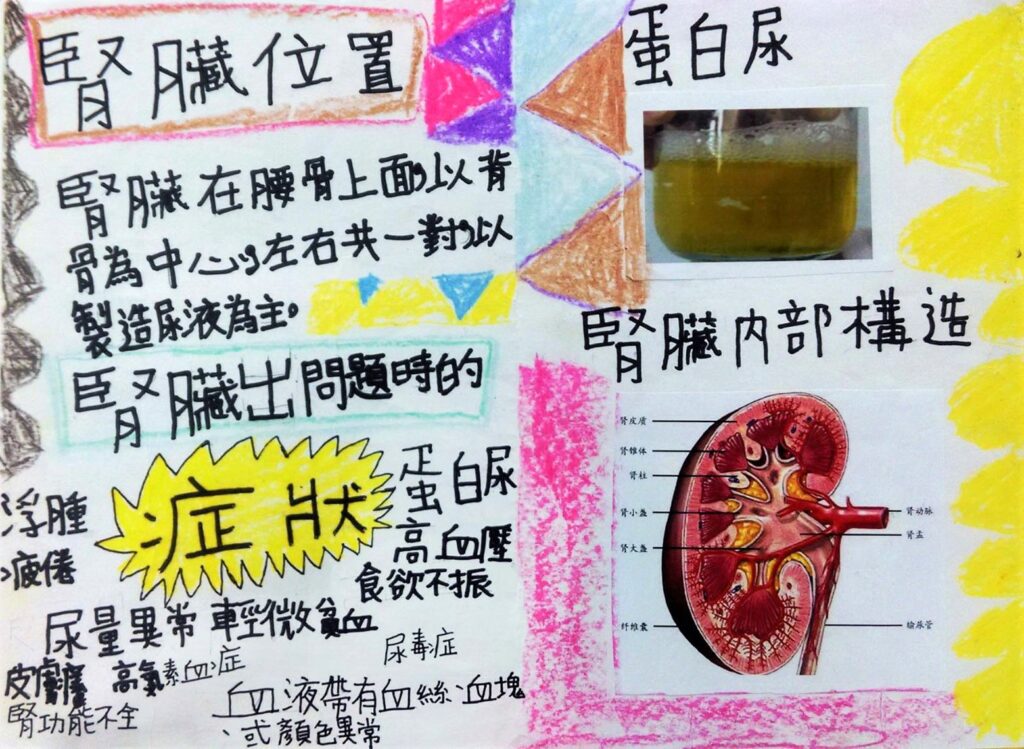 腎臟位置
腎臟在腰骨上面,以背
骨為中心,左右共一對,以
製造尿液為主。
腎臟出問題時的
症狀
浮腫
、疲倦
蛋白尿
高血壓
食欲不振
尿量異常
輕微貧血
皮膚癢
高氮素血症
尿毒症
腎功能不全
血液帶有血絲、血塊
、或顏色異常
蛋白尿
腎臟內部構造
肾皮质
肾锥体
肾柱
肾小盏
肾大盏
纤维囊
肾动脉
肾盂
输尿管